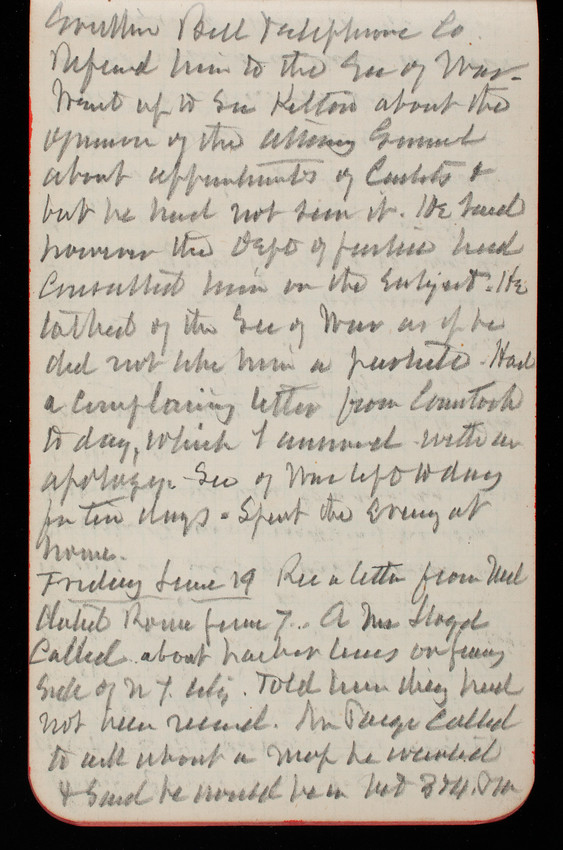 Southern Bell Telephone Co.
Refered him to the Sec of War -
Went up to see Kelton about the
opinion of the Attorney General
about appointments of Cadets &
but he had not seen it. He said
however the Dept of Justice had
consulted him on the subject. He
talked of the Sec of War as if he
did not like him a particle. Had
a complaining letter from Comstock
to day, which I answered with an
apology. Sec of War left to day
for ten days - Spent the evening at
home.
Friday June 19 Rec a letter from
dated Rome June 7. A Mr Lloyd
called about harbor lines on
side of N Y. City. Told him they had
not been received. Mr Paige called
to ask about a map he wanted
& said he would be in